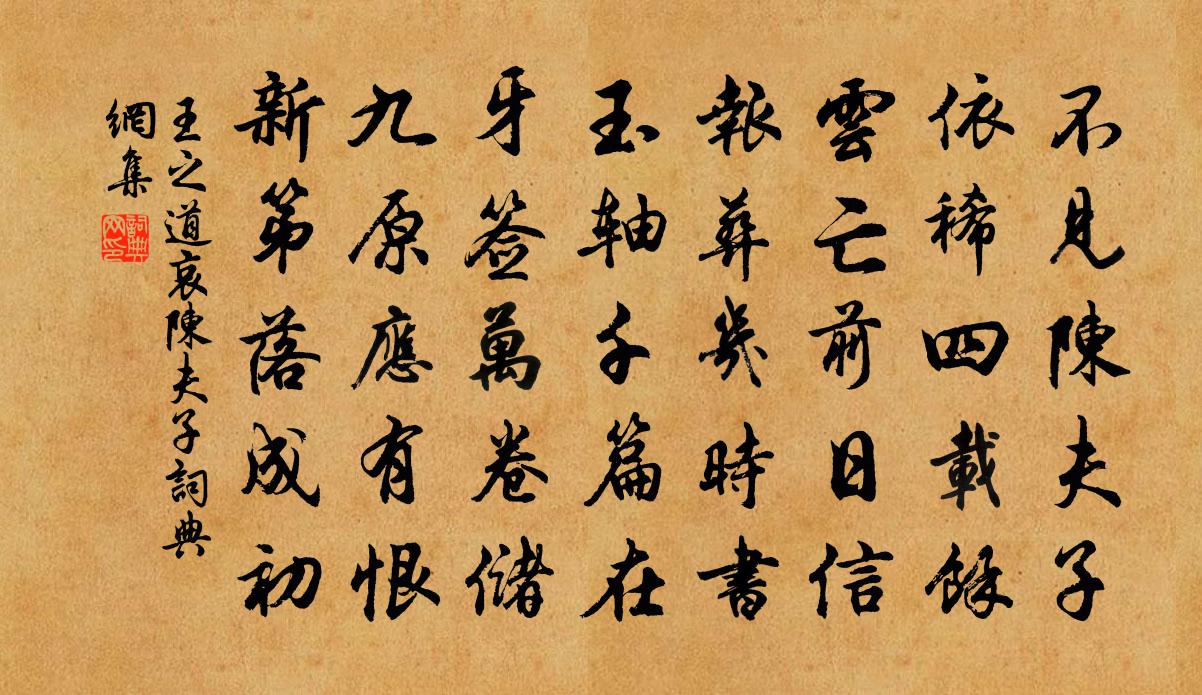 不見陳夫子
依稀四載餘
雲亡前日信
報葬幾時書
玉軸千篇在
牙签萬卷儲
九原應有恨
新第落成初
王之道哀陳夫子詞典
網集
詞典網印